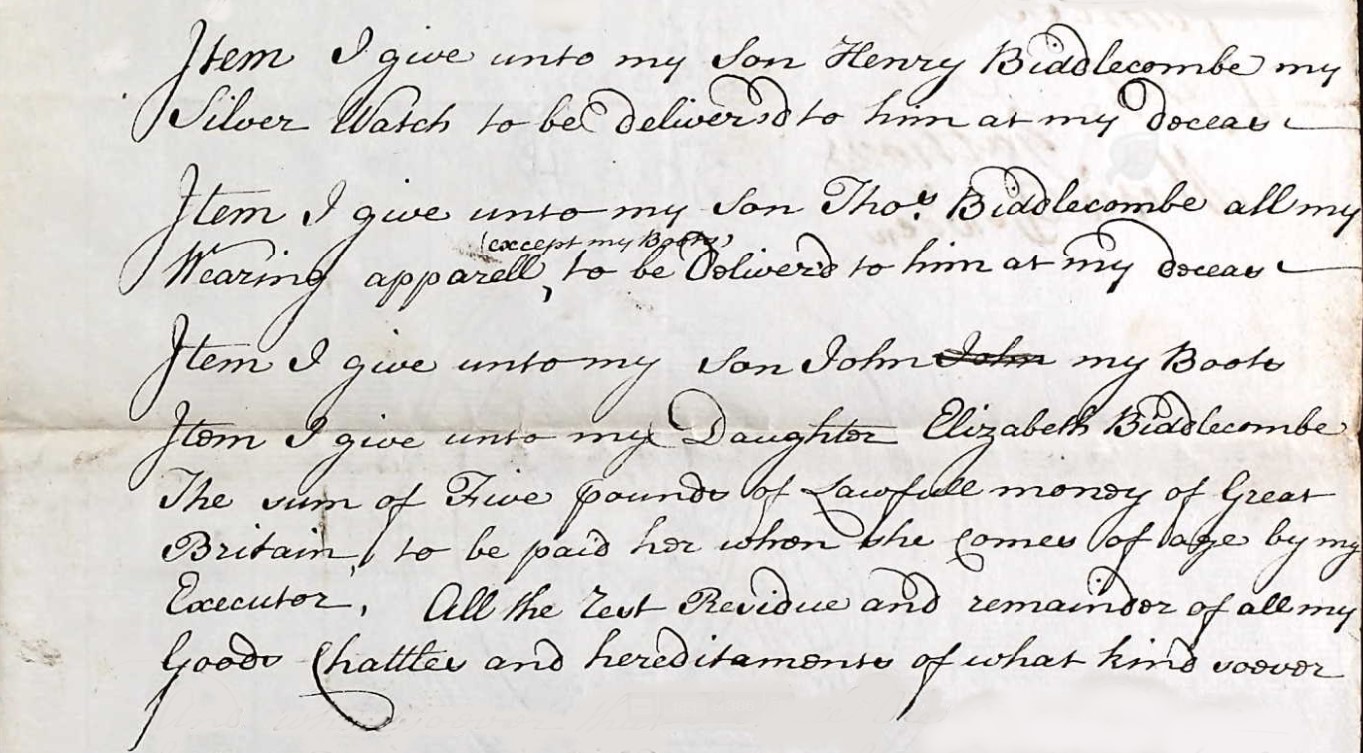 Item I give unto my Son Henry Biddlecombe my
Silver Watch to be deliver'd to him at my deceas
Item I give unto my Son Thos. Biddlecombe all my
(except my Boots)
Wearing apparell, to be Deliver'd to him at my deceas
Item I give unto my Son John John my Boots
Item I give unto my Daughter Elizabeth Biddlecombe
The sum of Five pounds of Lawfull money of Great
Britain, to be paid her when she comes of age by my
Executor. All the rest Residue and remainder of all my
Goods Chattles and hereditaments of what kind soever